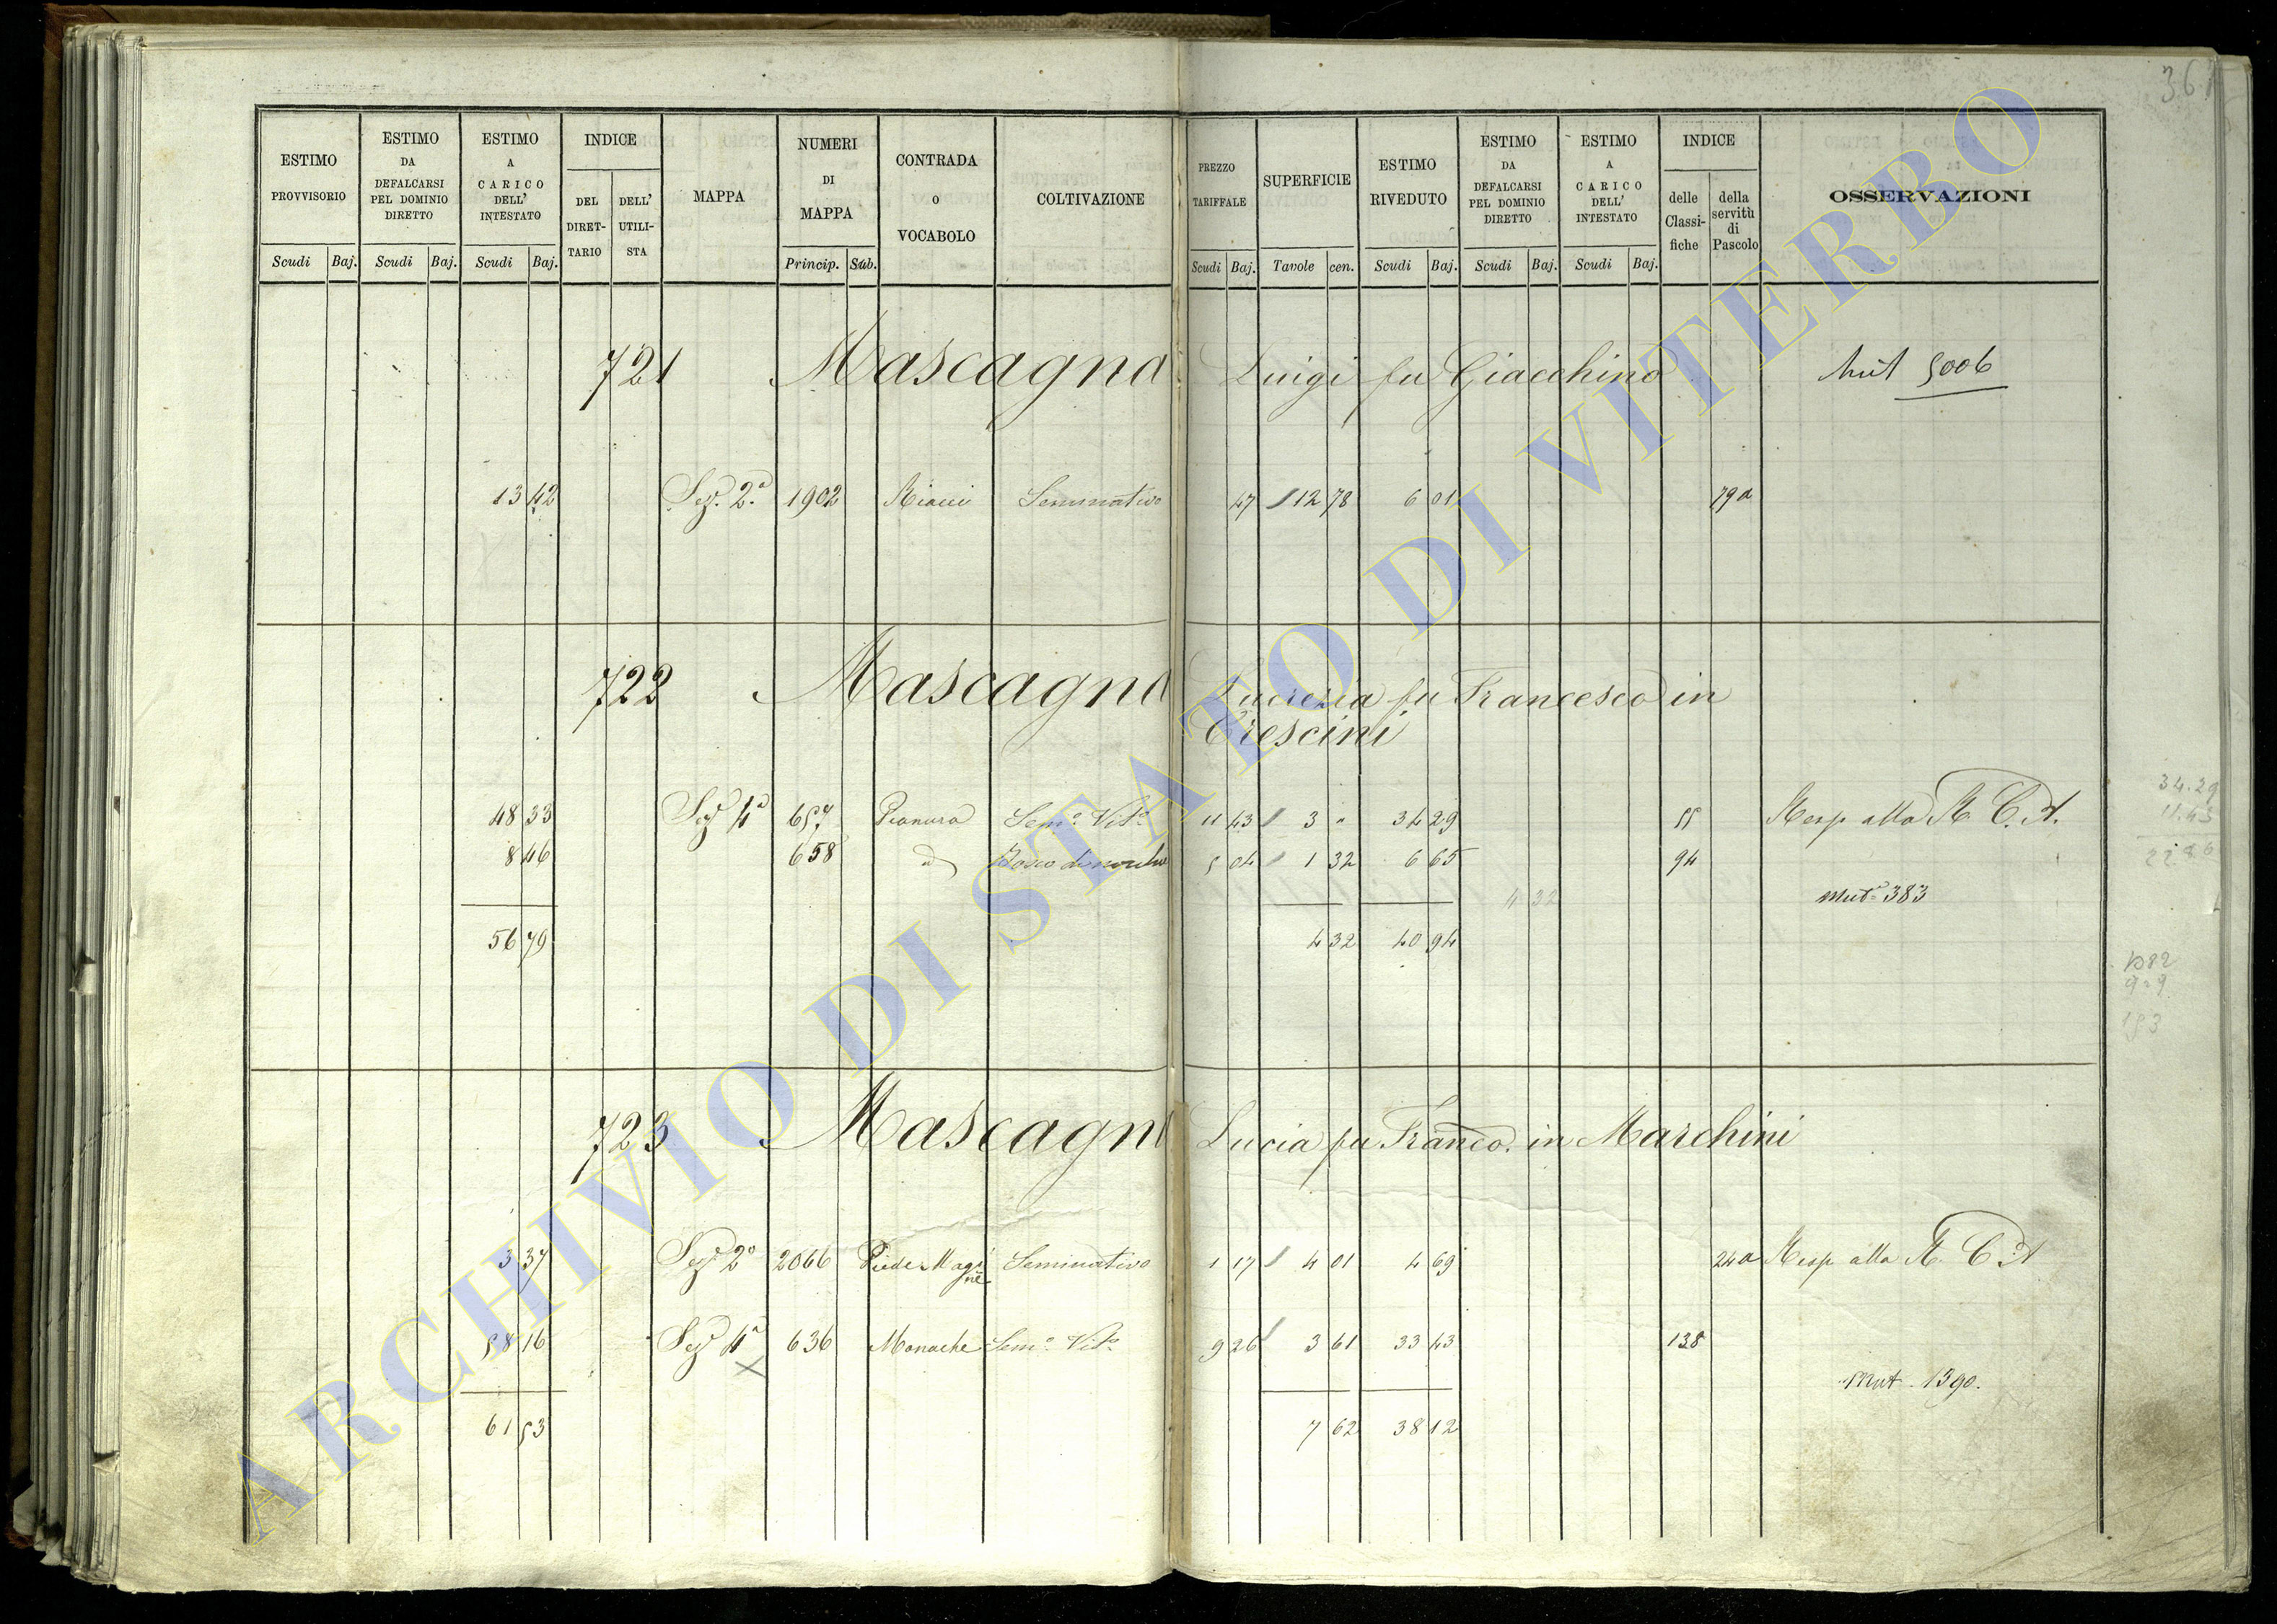 361
ESTIMO PROVVISORIO
ESTIMO DA DEFALCARSI PEL DOMINIO DIRETTO
ESTIMO A CARICO DELL' INTESTATO
INDICE
DEL DIRETTARIO
DELL' UTILISTA
MAPPA
NUMERI DI MAPPA
CONTRADA O VOCABOLO
COLTIVAZIONE
PREZZO TARIFFALE
SUPERFICIE
ESTIMO RIVEDUTO
ESTIMO DA DEFALCARSI PEL DOMINIO DIRETTO
ESTIMO A CARICO DELL' INTESTATO
INDICE
delle Classifiche
della servitù di Pascolo
OSSERVAZIONI
Scudi Baj. Scudi Baj. Scudi Baj. Princip. Sub. Scudi Baj. Tavole cen. Scudi Baj. Scudi Baj. Scudi Baj.
721 Mascagna Luigi fu Giacchino Mut 5006
13 42 Sez. 2a 1902 Riacci Seminativo 47 12 78 6 01 79a
722 Mascagna Lucrezia fu Francesco in
Crescini
48 33 Sez 4a 657 Pianura Semo Vito 11 43 3 " 34 29 55 Resp alla R. C. A.
8 46 658 id Bosco di 5 04 1 32 6 65 94
4 32 Muta 383
56 79 4 32 40 94
34.29
11.43
22 86
1582
929
153
723 Mascagna Lucia fu Franco. in Marchini
3 37 Sez 2a 2066 Piede Magine Seminativo 1 17 4 01 4 69 24a Resp alla R. C. A
58 16 Sez 4a 636 Monache Semo Vito 9 26 3 61 33 43 138
X
Mut. 1390.
61 53 7 62 38 12
ARCHIVIO DI STATO DI VITERBO